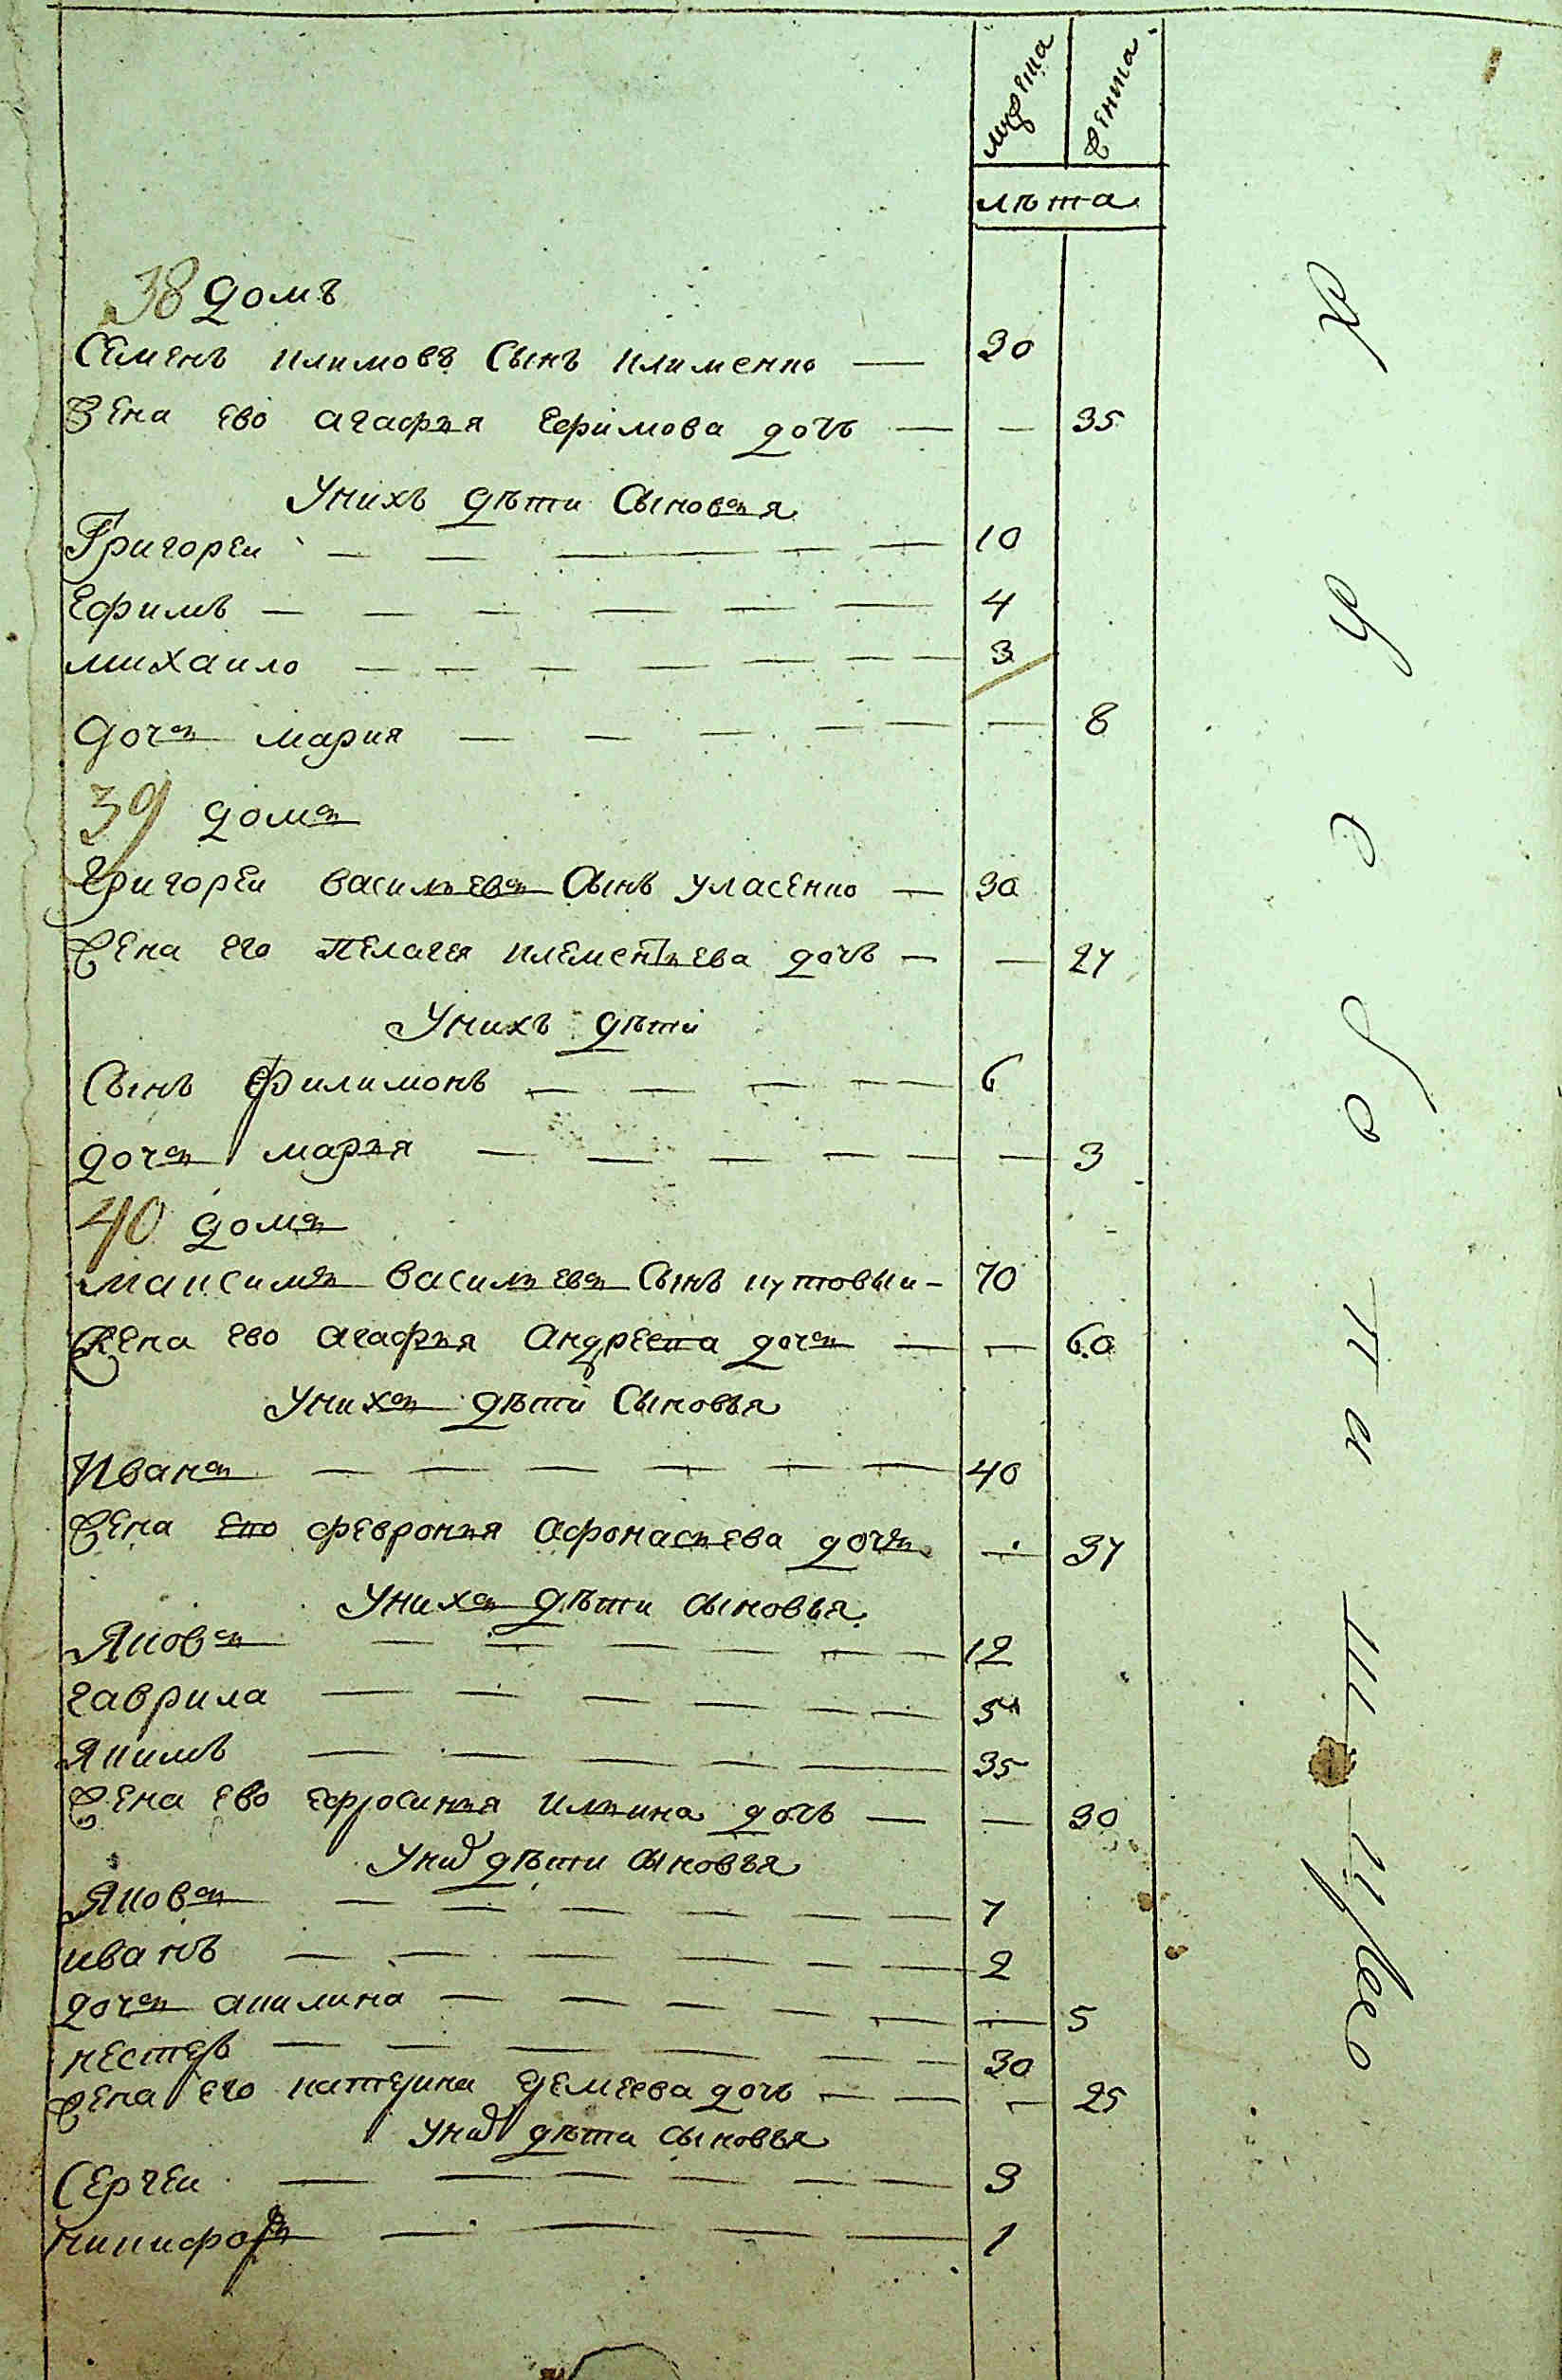 мужеска женска
лѣта
38 домъ
Семенъ климовъ Сынъ клименко — 30
Жена ево агафья Ефимова дочь — — 35
Унихъ дѣти Сыновья
Григореи — — — — — 10
Ефимъ — — — — — — 4
михаило — — — — — — — 3
дочь мария — — — — — — 8
39 домъ
Григореи васильевъ Сынъ уласенко — 30
Жена его Пелагея клеменTьева дочь — — 27
Унихъ дѣти
Сынъ Филимонъ — — — — — 6
дочь марья — — — — — — 3
40 домъ
максимъ васильевъ Сынъ кутовыи — 70
Жена ево агафья андреева дочь — — 60
Унихъ дѣти Сыновья
Иванъ — — — — — — 40
Жена ево февронья афонасьева дочь — 37
Унихъ дѣти сыновья
Яковъ — — — — — — 12
гаврила — — — — — — 5
Якимъ — — — — — 35
Жена ево ефросинья ильина дочь — — 30
Унихъ дѣти сыновья
Яковъ — — — — — — 7
иванъ — — — — — — 2
дочь акилина — — — — — — 5
нестеръ — — — — — — 30
Жена его катерина еремеева дочь — — — 25
Унихъ дѣти сыновья
Сергеи — — — — — — 3
никифоръ — — — — 1